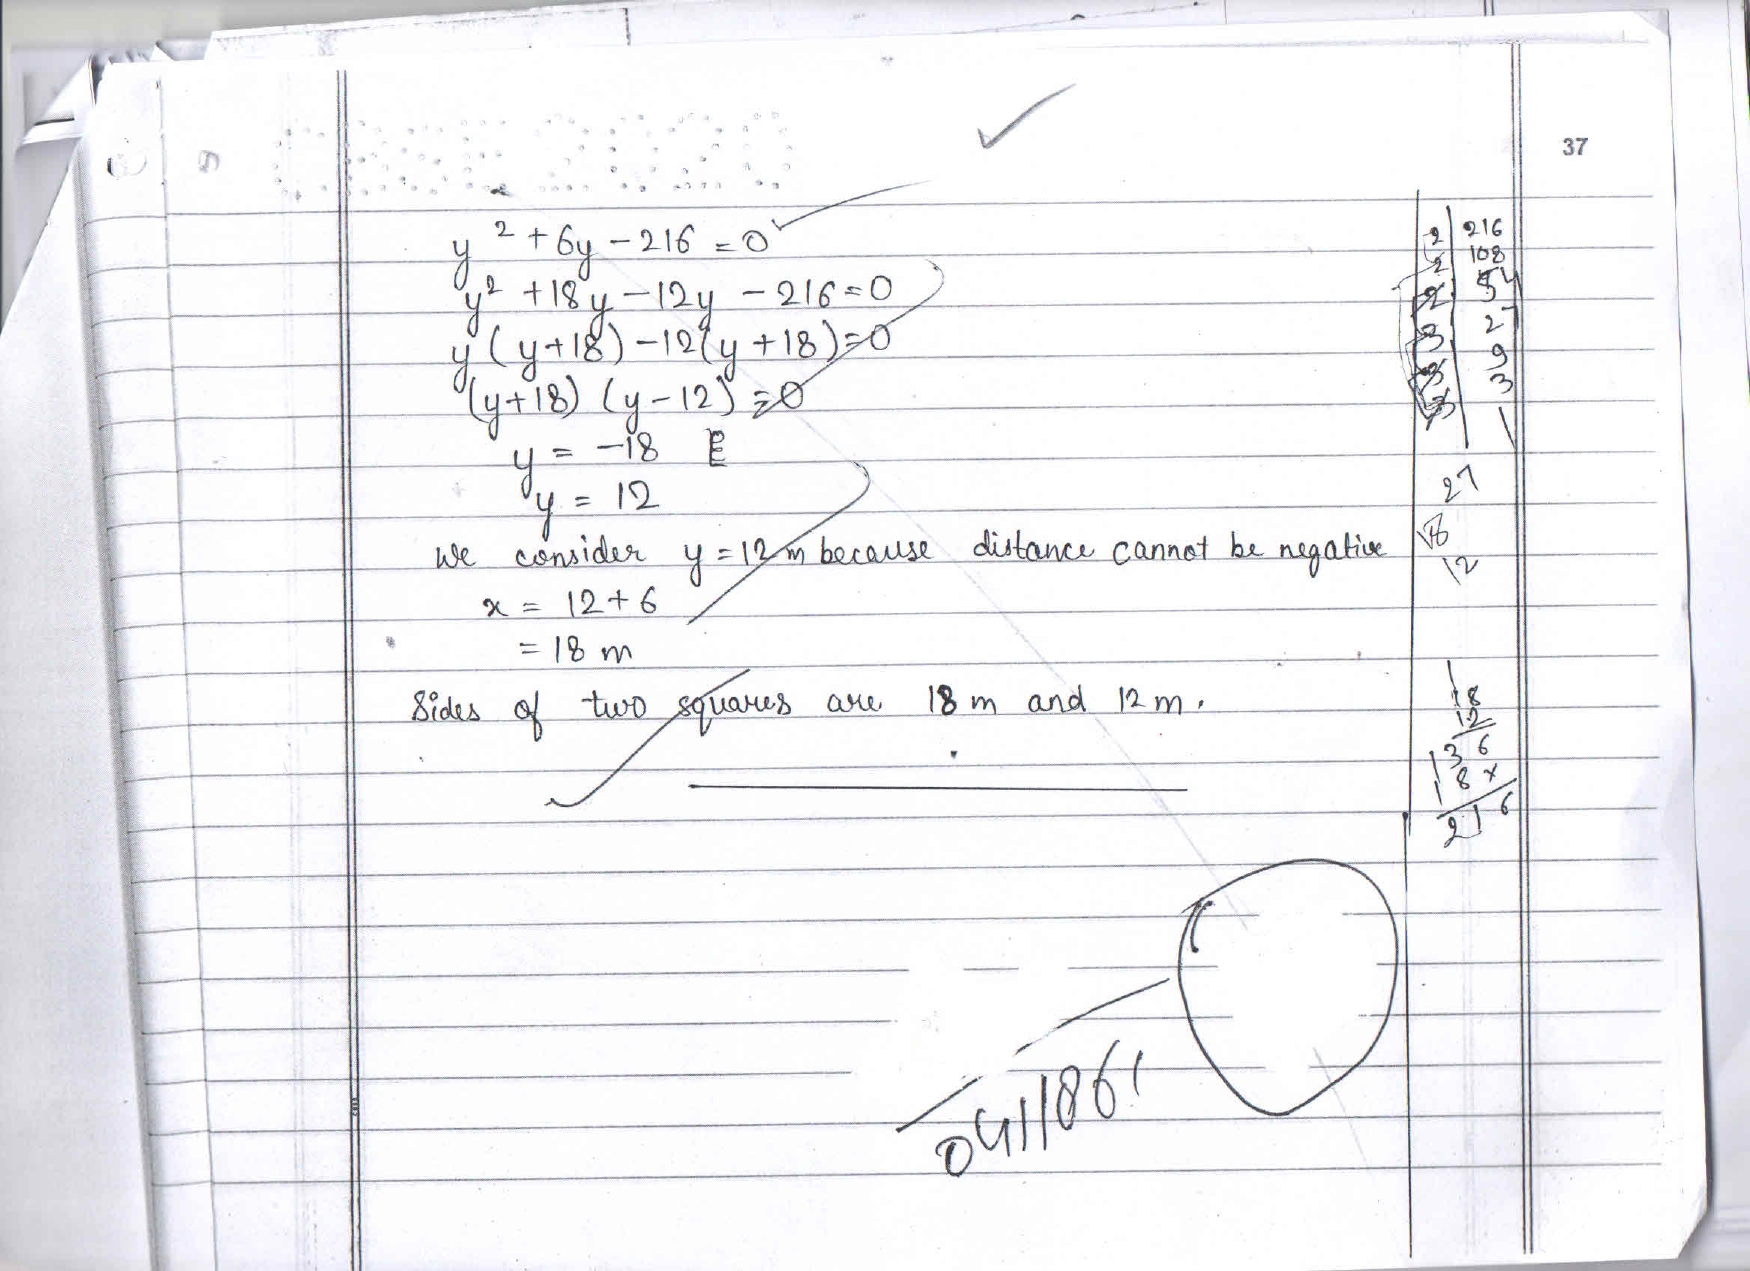 CBSE 2020
37
y² + 6y - 216 = 0
y² + 18y - 12y - 216 = 0
y(y+18) - 12(y+18) = 0
(y+18) (y-12) = 0
y = -18
y = 12
We consider y = 12 m because distance cannot be negative
x = 12 + 6
= 18 m
Sides of two squares are 18 m and 12 m.
2 | 216
2 | 108
2 | 54
3 | 27
3 | 9
3 | 3
1
27
12
18
12
36
18 x
216